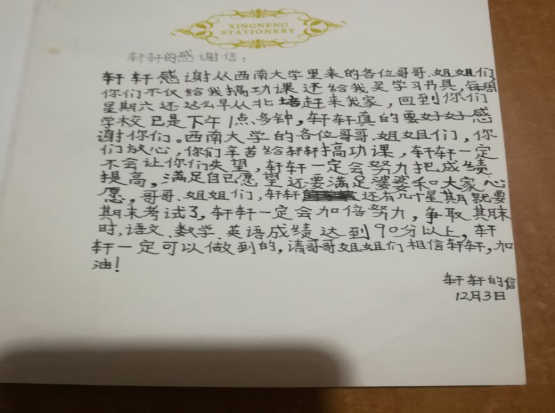 XINGNENG
STATIONERY
轩轩的感谢信:
轩轩感谢从西南大学里来的各位哥哥、姐姐们,
你们不仅给我搞功课还给我买学习书具,每周
星期六还这么早从北培赶来我家,回到你们
学校已是下午1点多钟,轩轩真的要好好感
谢你们。西南大学的各位哥哥、姐姐们,你
们放心,你们辛苦给轩轩搞功课,轩轩一定
不会让你们失望,轩轩一定会努力把成绩
提高,满足自己愿望还要满足婆婆和大家心
愿,哥哥、姐姐们,轩轩还有几个星期就要
期末考试了,轩轩一定会加倍努力,争取期末
时,语文、数学、英语成绩达到90分以上,轩
轩一定可以做到的,请哥哥姐姐们相信轩轩,加
油!
轩轩的信
12月3日